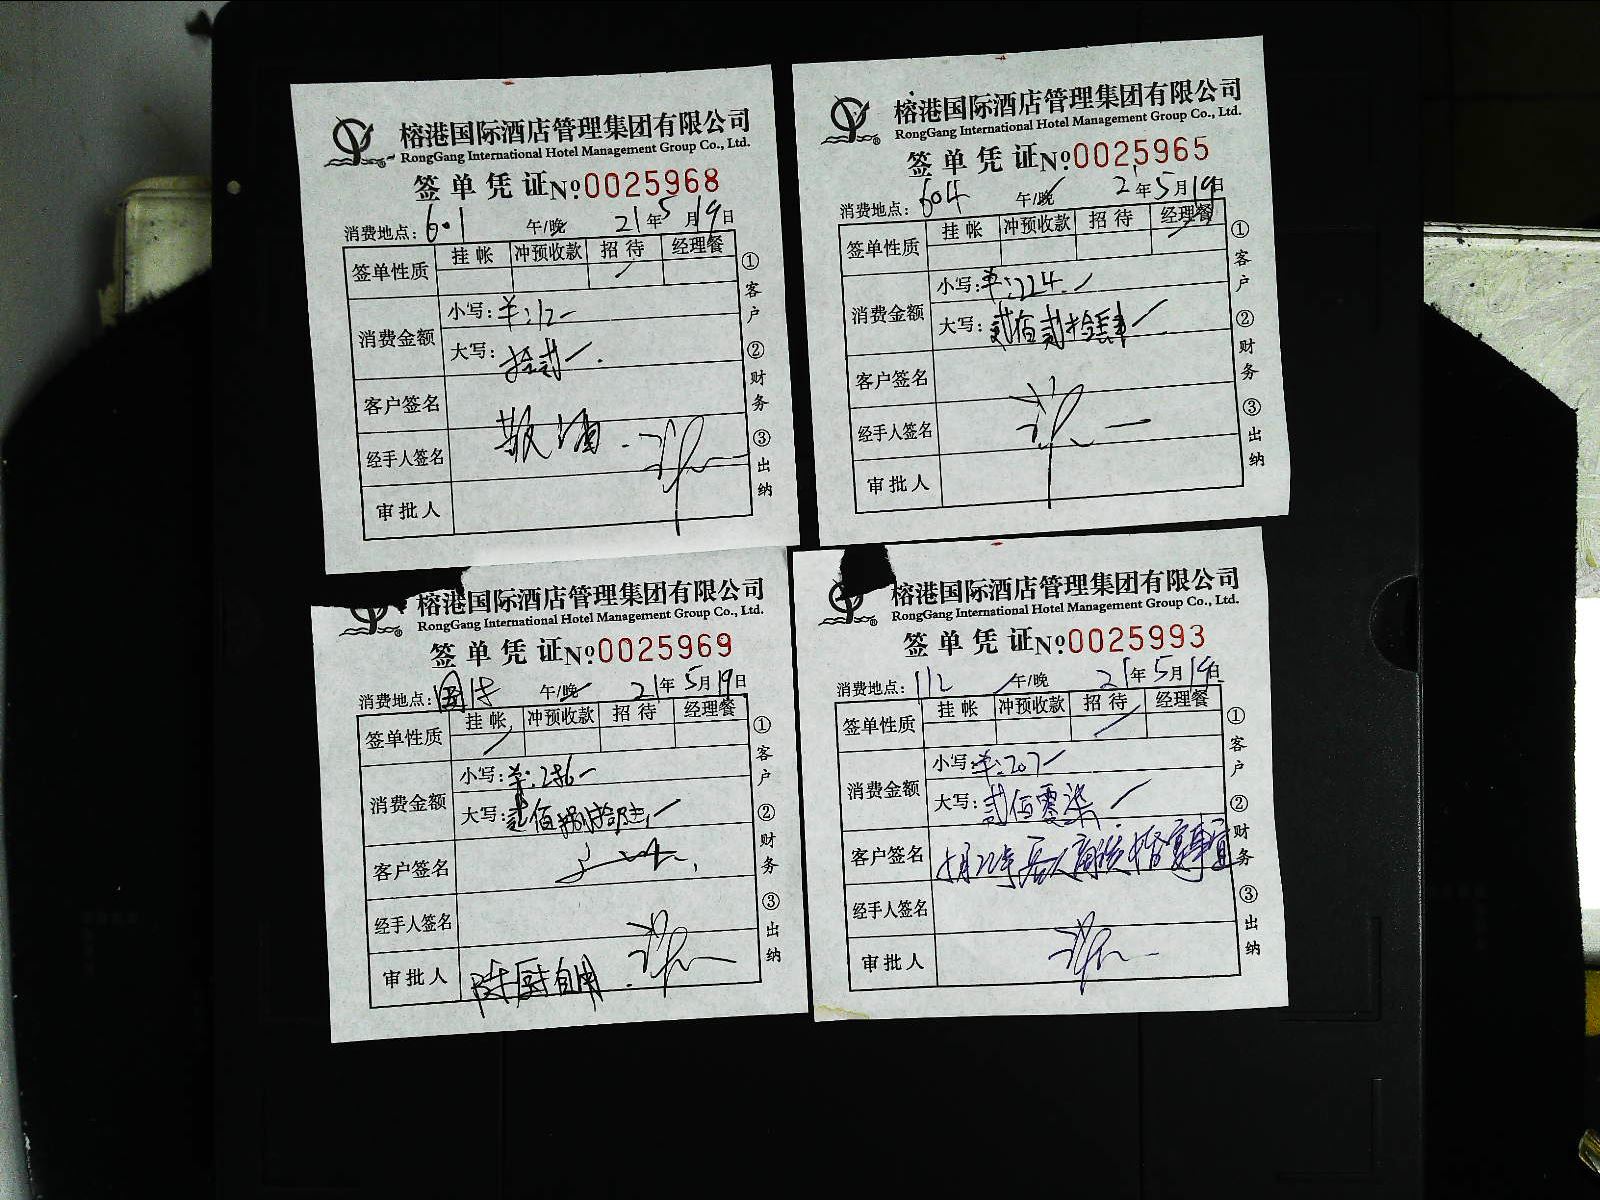 榕港国际酒店管理集团有限公司
RongGang International Hotel Management Group Co., Ltd.
签单凭证 №0025968
消费地点: 601 午/晚 21年5月19日
签单性质 挂帐 冲预收款 招待 经理餐
消费金额 小写: ¥:12
大写: 拾贰
客户签名
敬酒
经手人签名
审批人
①客户 ②财务 ③出纳
榕港国际酒店管理集团有限公司
RongGang International Hotel Management Group Co., Ltd.
签单凭证 №0025965
消费地点: 604 午/晚 21年5月19日
签单性质 挂帐 冲预收款 招待 经理餐
消费金额 小写: ¥:224
大写: 贰佰贰拾肆
客户签名
经手人签名
审批人
①客户 ②财务 ③出纳
榕港国际酒店管理集团有限公司
RongGang International Hotel Management Group Co., Ltd.
签单凭证 №0025969
消费地点: 午/晚 21年5月19日
签单性质 挂帐 冲预收款 招待 经理餐
消费金额 小写: ¥:286
大写: 贰佰捌拾陆
客户签名
经手人签名
审批人 陈厨自用
①客户 ②财务 ③出纳
榕港国际酒店管理集团有限公司
RongGang International Hotel Management Group Co., Ltd.
签单凭证 №0025993
消费地点: 112 午/晚 21年5月19日
签单性质 挂帐 冲预收款 招待 经理餐
消费金额 小写: ¥:207
大写: 贰佰零柒
客户签名
经手人签名
审批人
①客户 ②财务 ③出纳